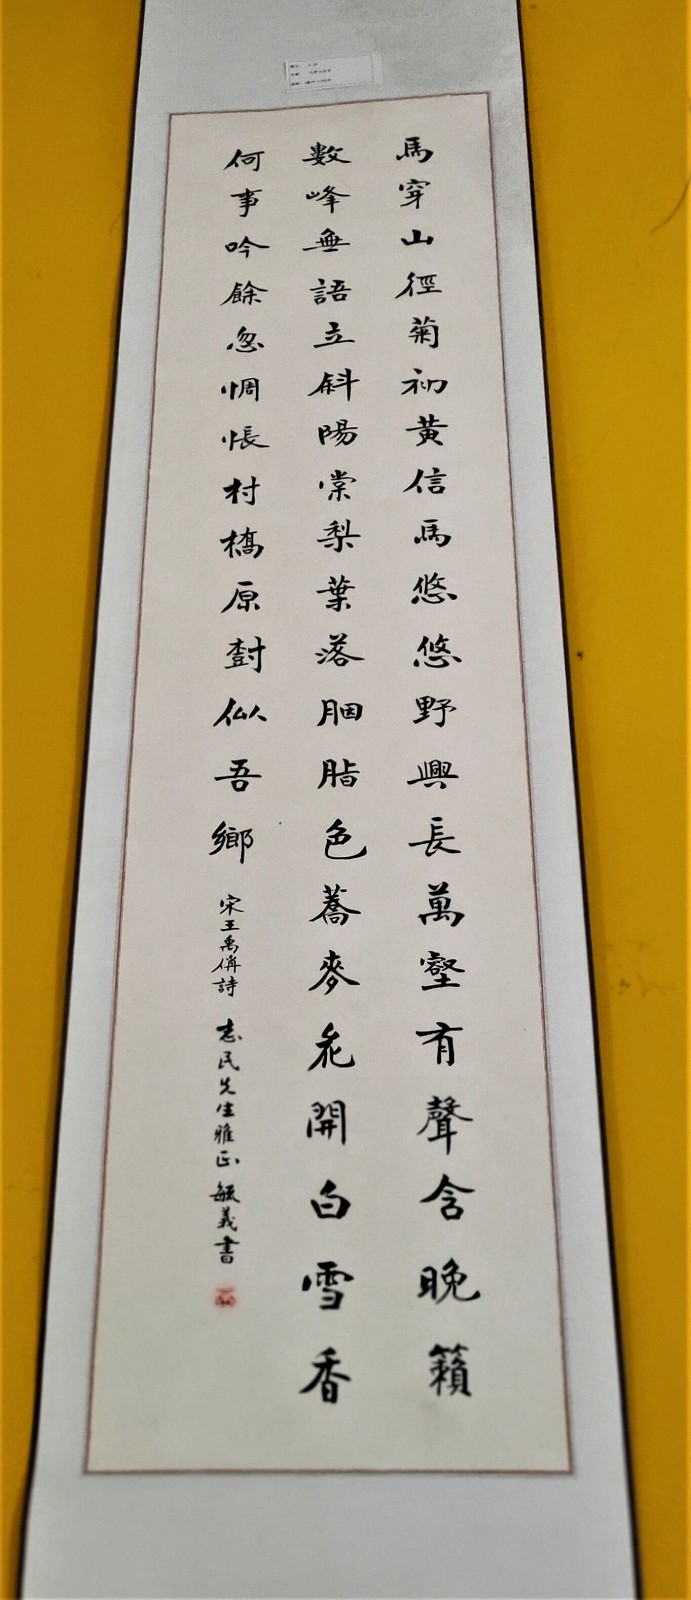 馬穿山徑菊初黃信馬悠悠野興長萬壑有聲含晚籟
數峰無語立斜陽棠梨葉落胭脂色蕎麥花開白雪香
何事吟餘忽惆悵村橋原樹似吾鄉
宋王禹偁詩
志民先生雅正 毓義書